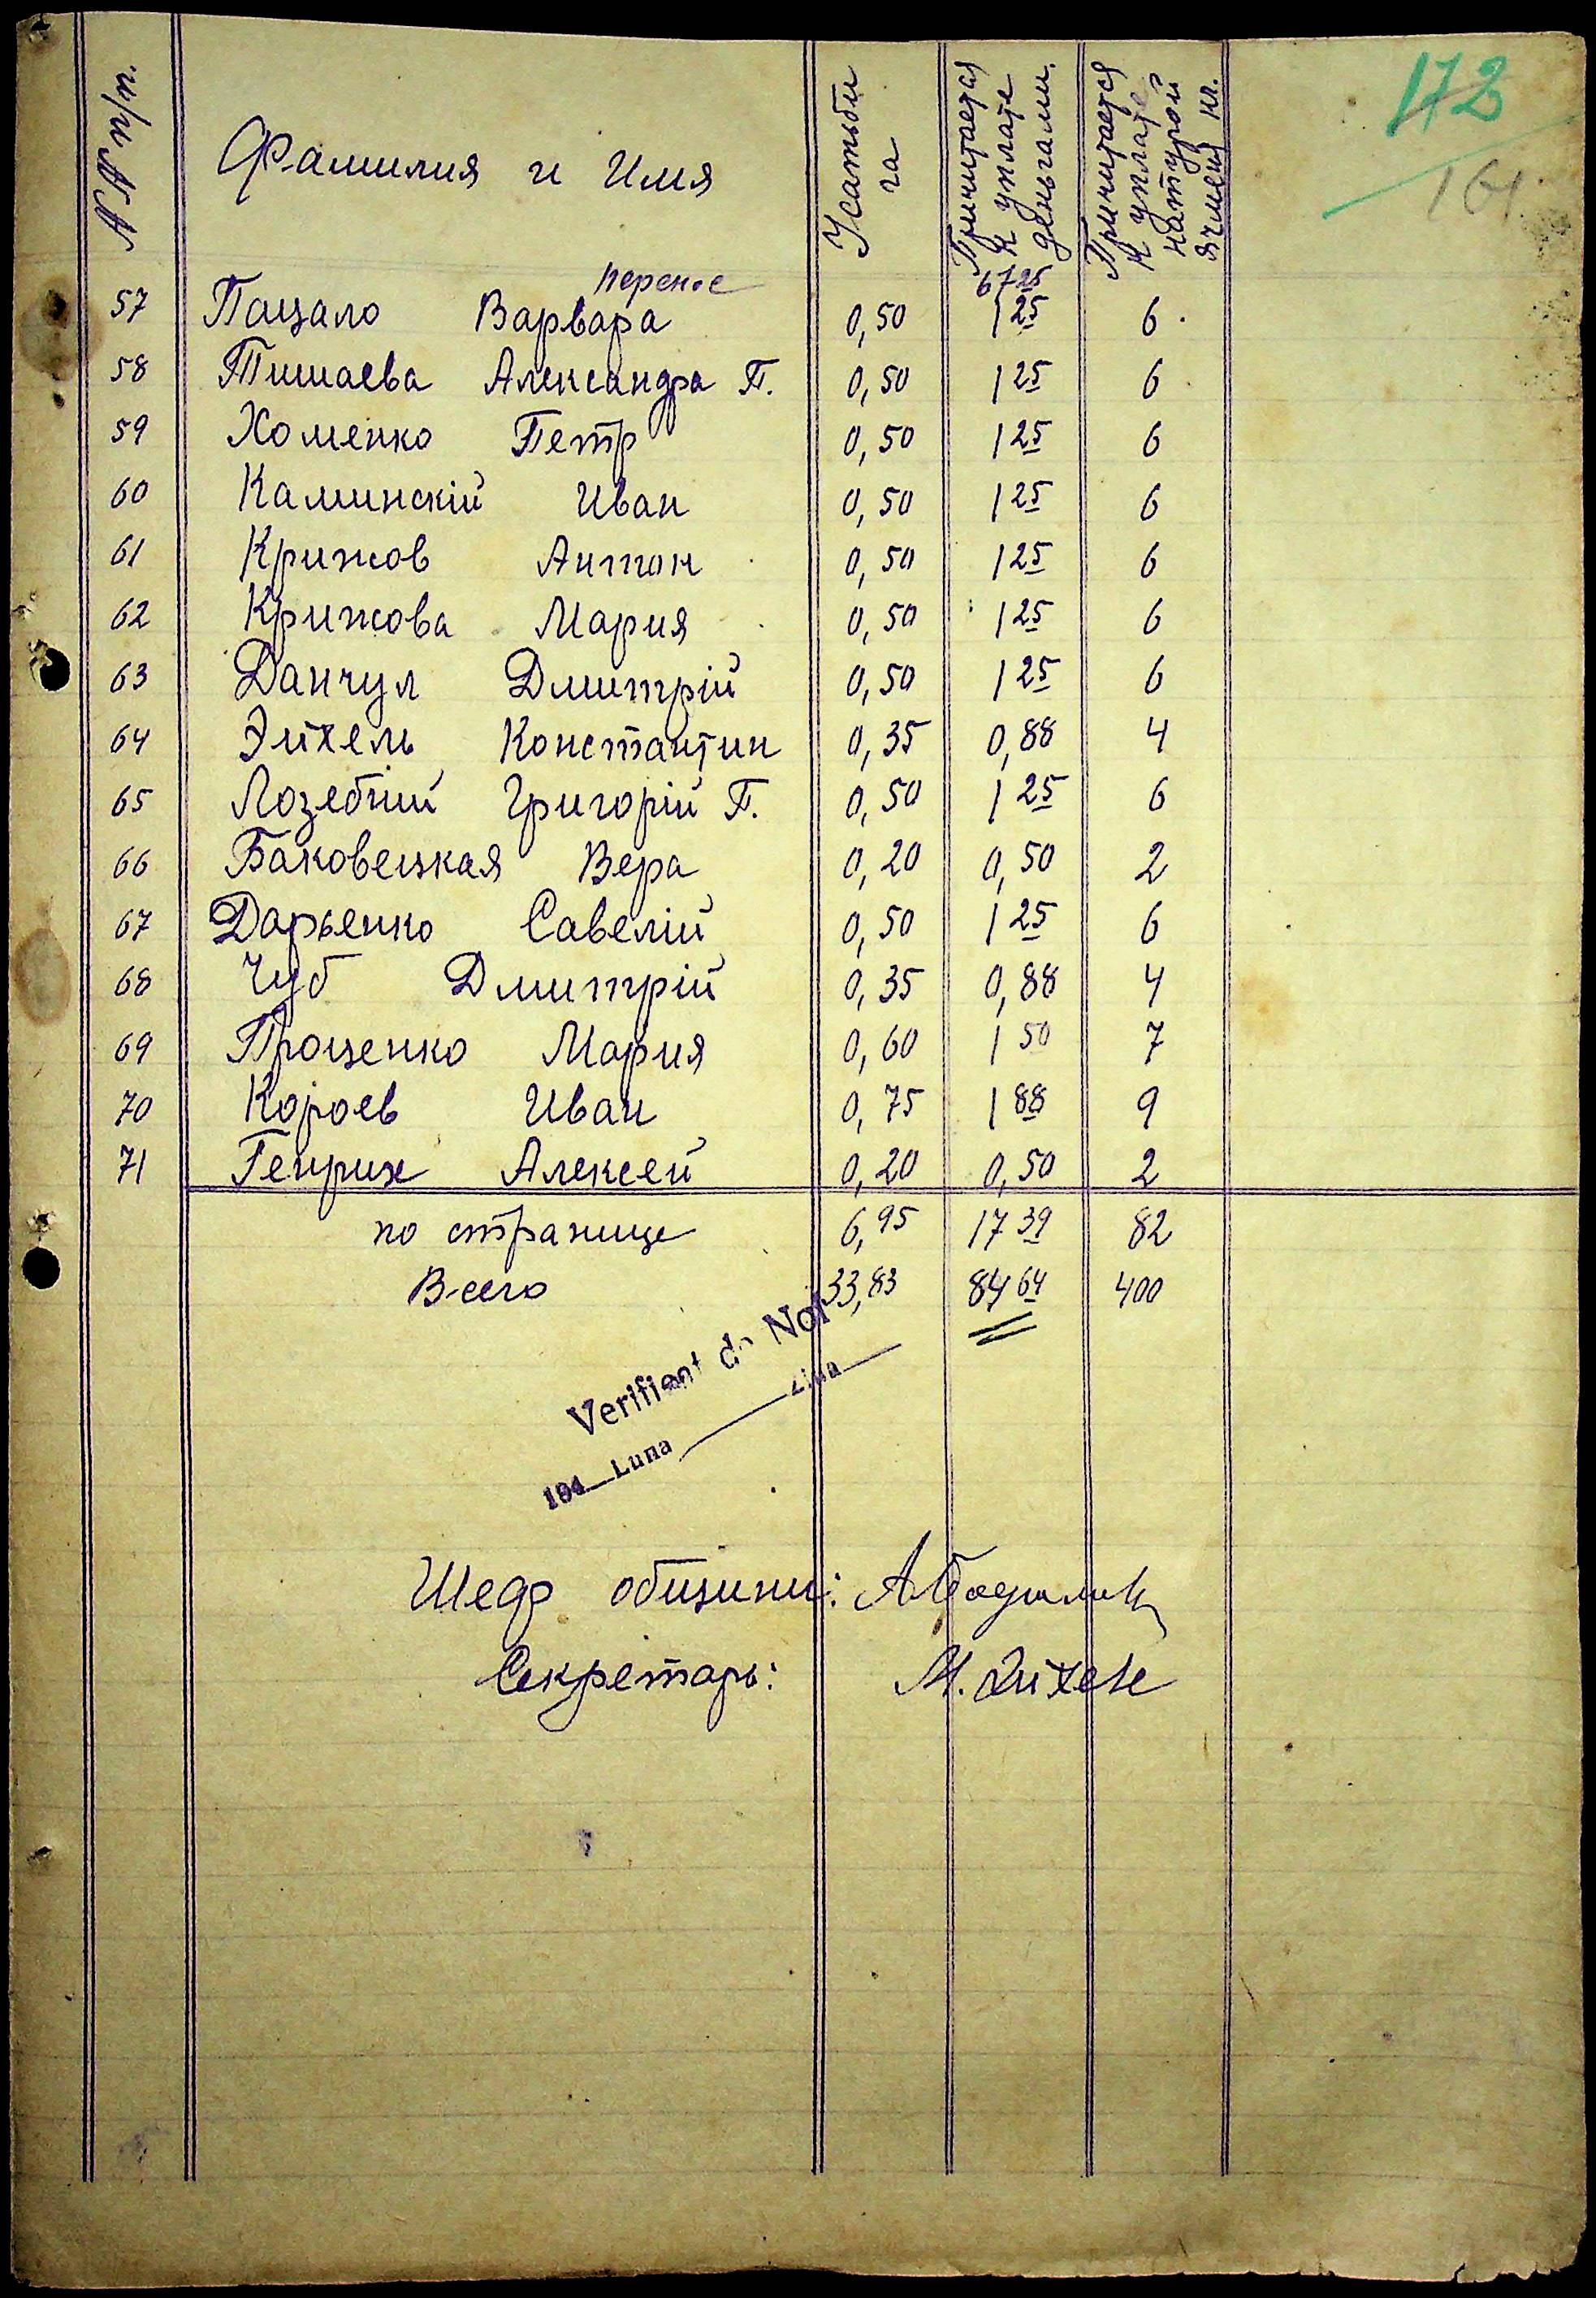 172
161
№№ п/п. Фамилия и Имя Усатьбы га Причитается к уплате деньгами. Причитается к уплате натурой ячменя кг.
перенос 67 25
57 Пацало Варвара 0,50 1 25 6
58 Тишаева Александра П. 0,50 1 25 6
59 Хоменко Петр 0,50 1 25 6
60 Каминскій Иван 0,50 1 25 6
61 Крижов Антон 0,50 1 25 6
62 Крижова Мария 0,50 1 25 6
63 Данчул Дмитрій 0,50 1 25 6
64 Эйхель Константин 0,35 0,88 4
65 Лозебний Григорій П. 0,50 1 25 6
66 Баковецкая Вера 0,20 0,50 2
67 Дарьенко Савелій 0,50 1 25 6
68 Чуб Дмитрій 0,35 0,88 4
69 Проценко Мария 0,60 1 50 7
70 Короев Иван 0,75 1 88 9
71 Генрих Алексей 0,20 0,50 2
по странице 6,95 17 39 82
Всего 33,83 84 64 400
Verificat de Noi
194 Luna Ziua
Шеф общини:
Секретарь: М. Эйхель